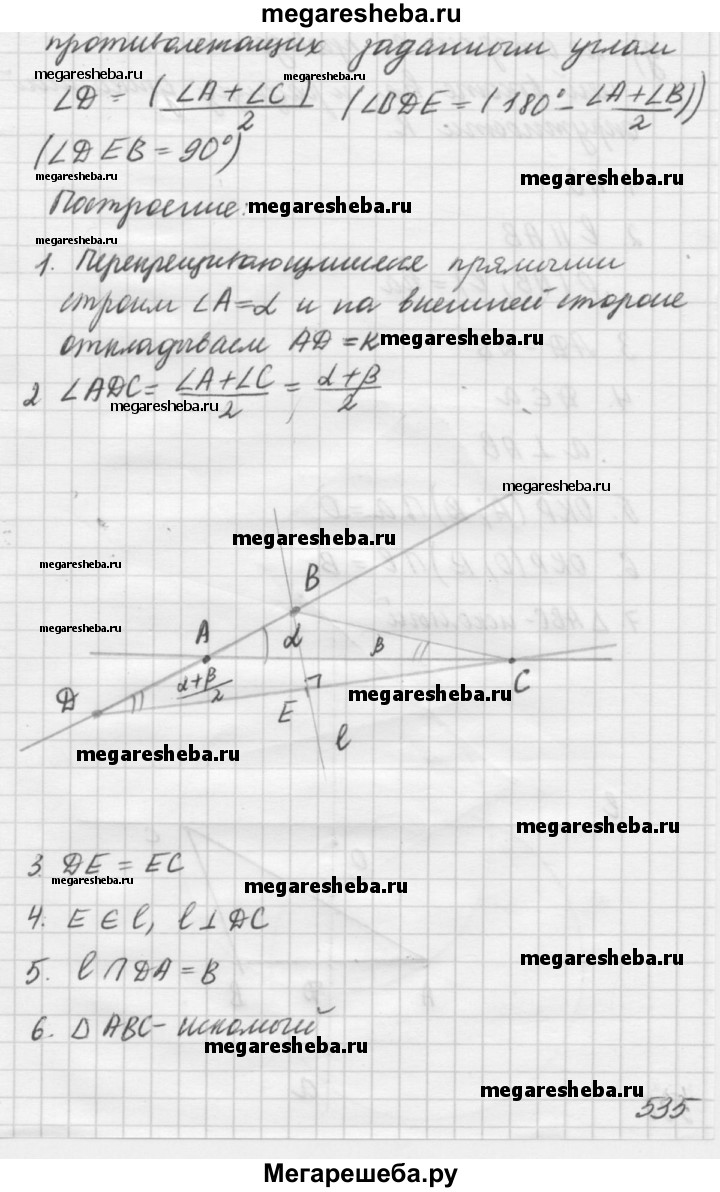 megaresheba.ru
противолежащих заданным углам
megaresheba.ru megaresheba.ru
∠D = (∠A + ∠C)/2 (∠BDE = (180° − (∠A + ∠B)/2))
(∠DEB = 90°)
megaresheba.ru megaresheba.ru
Построение: megaresheba.ru
megaresheba.ru
1. прямыми
строим ∠A = α и на внешней стороне
откладываем AD = K megaresheba.ru
2 ∠ADC = (∠A + ∠C)/2 = (α + β)/2
megaresheba.ru
megaresheba.ru
megaresheba.ru
megaresheba.ru
B
megaresheba.ru
A α β
(α + β)/2 C
D E megaresheba.ru
megaresheba.ru ℓ
megaresheba.ru
3. DE = EC
megaresheba.ru megaresheba.ru
4. E ∈ ℓ, ℓ ⊥ DC
5. ℓ ∩ DA = B megaresheba.ru
6. Δ ABC - искомый
megaresheba.ru
megaresheba.ru
535
Мегарешеба.ру